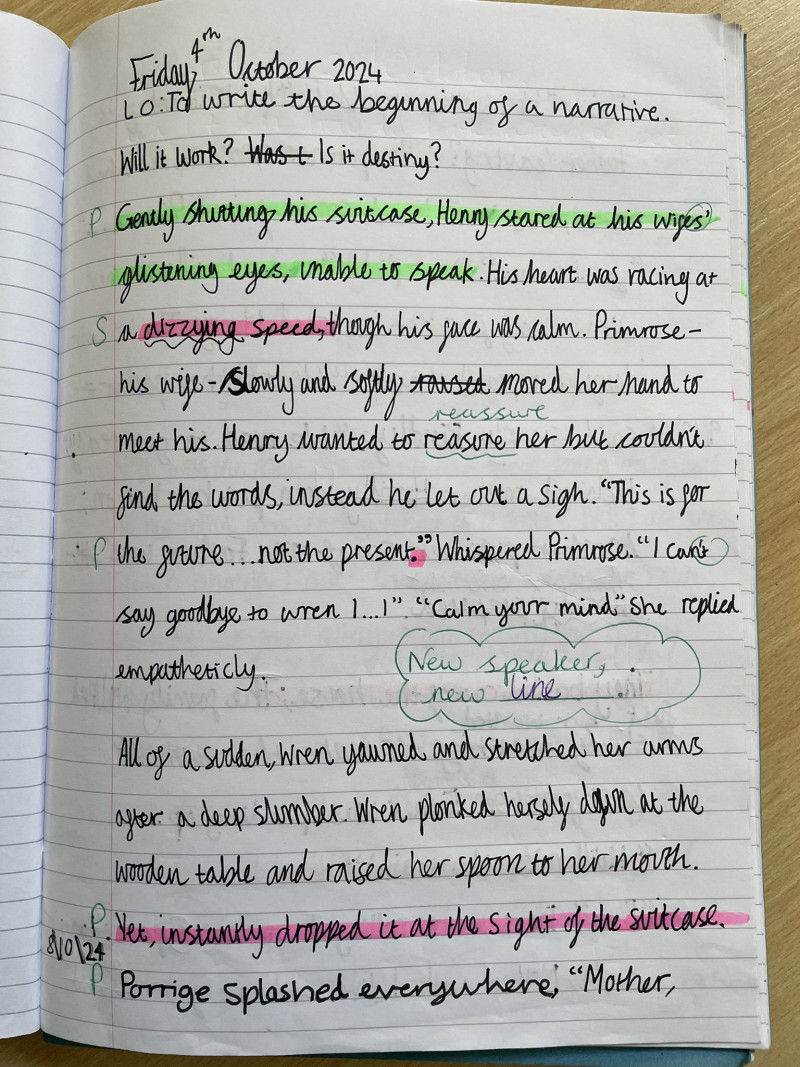 Friday, 4th October 2024
LO: To write the beginning of a narrative.
Will it work? Was t Is it destiny?
P Gently shutting his suitcase, Henry stared at his wifes'
glistening eyes, unable to speak. His heart was racing at
S a dizzying speed, though his face was calm. Primrose -
his wife - Slowly and softly raised moved her hand to
reassure
meet his. Henry wanted to reasure her but couldn't
find the words, instead he let out a sigh. "This is for
P the future... not the present." Whispered Primrose. "I can't
say goodbye to wren I...I" "Calm your mind" She replied
empatheticly.
New speaker,
new line
All of a sudden, Wren yawned and stretched her arms
after a deep slumber. Wren plonked herself down at the
wooden table and raised her spoon to her mouth.
P Yet, instantly dropped it at the sight of the suitcase.
8/10/24
P Porrige splashed everywhere, "Mother,